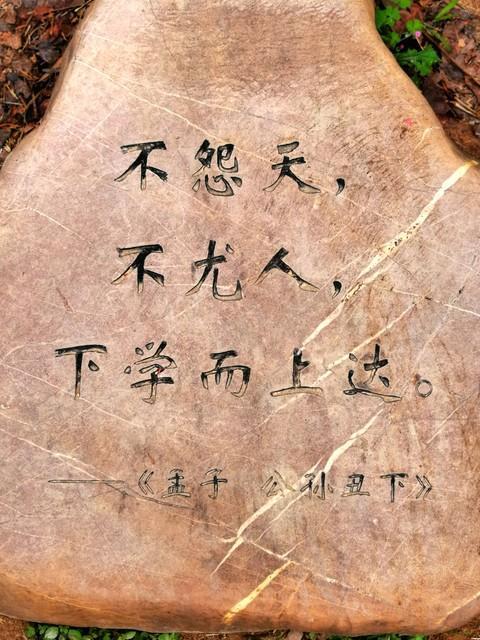 不怨天，
不尤人，
下学而上达。
——《孟子 公孙丑下》